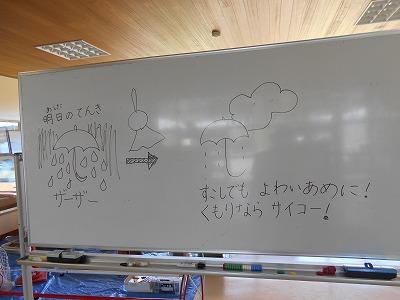 あした
明日のてんき
ザーザー
すこしでも よわいあめに！
くもりなら サイコー！